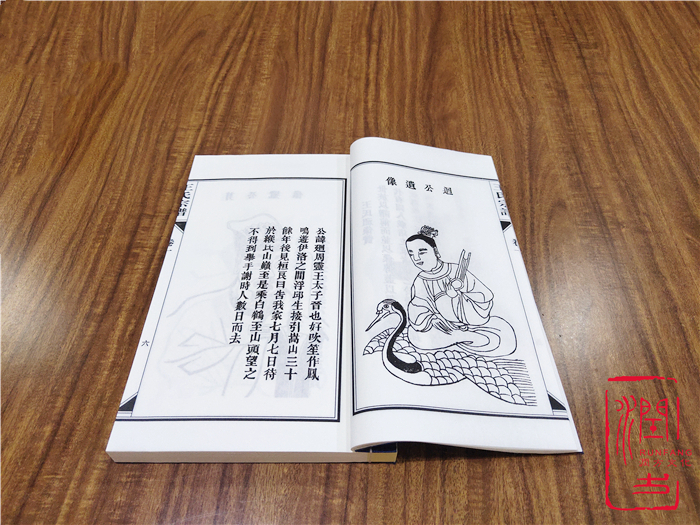 迴公遺像
公諱迴周靈王太子晉也好吹笙作鳳
鳴遊伊洛之間浮邱生接引嵩山三十
餘年後見桓良曰告我家七月七日待
於緱氏山巔至是乘白鶴至山頭望之
不得到舉手謝時人數日而去
王氏宗譜
卷一
六
潤